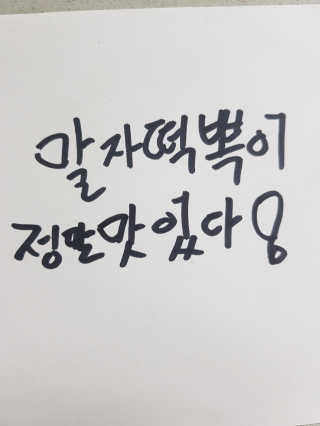 말자떡뽁이
정말맛있다!